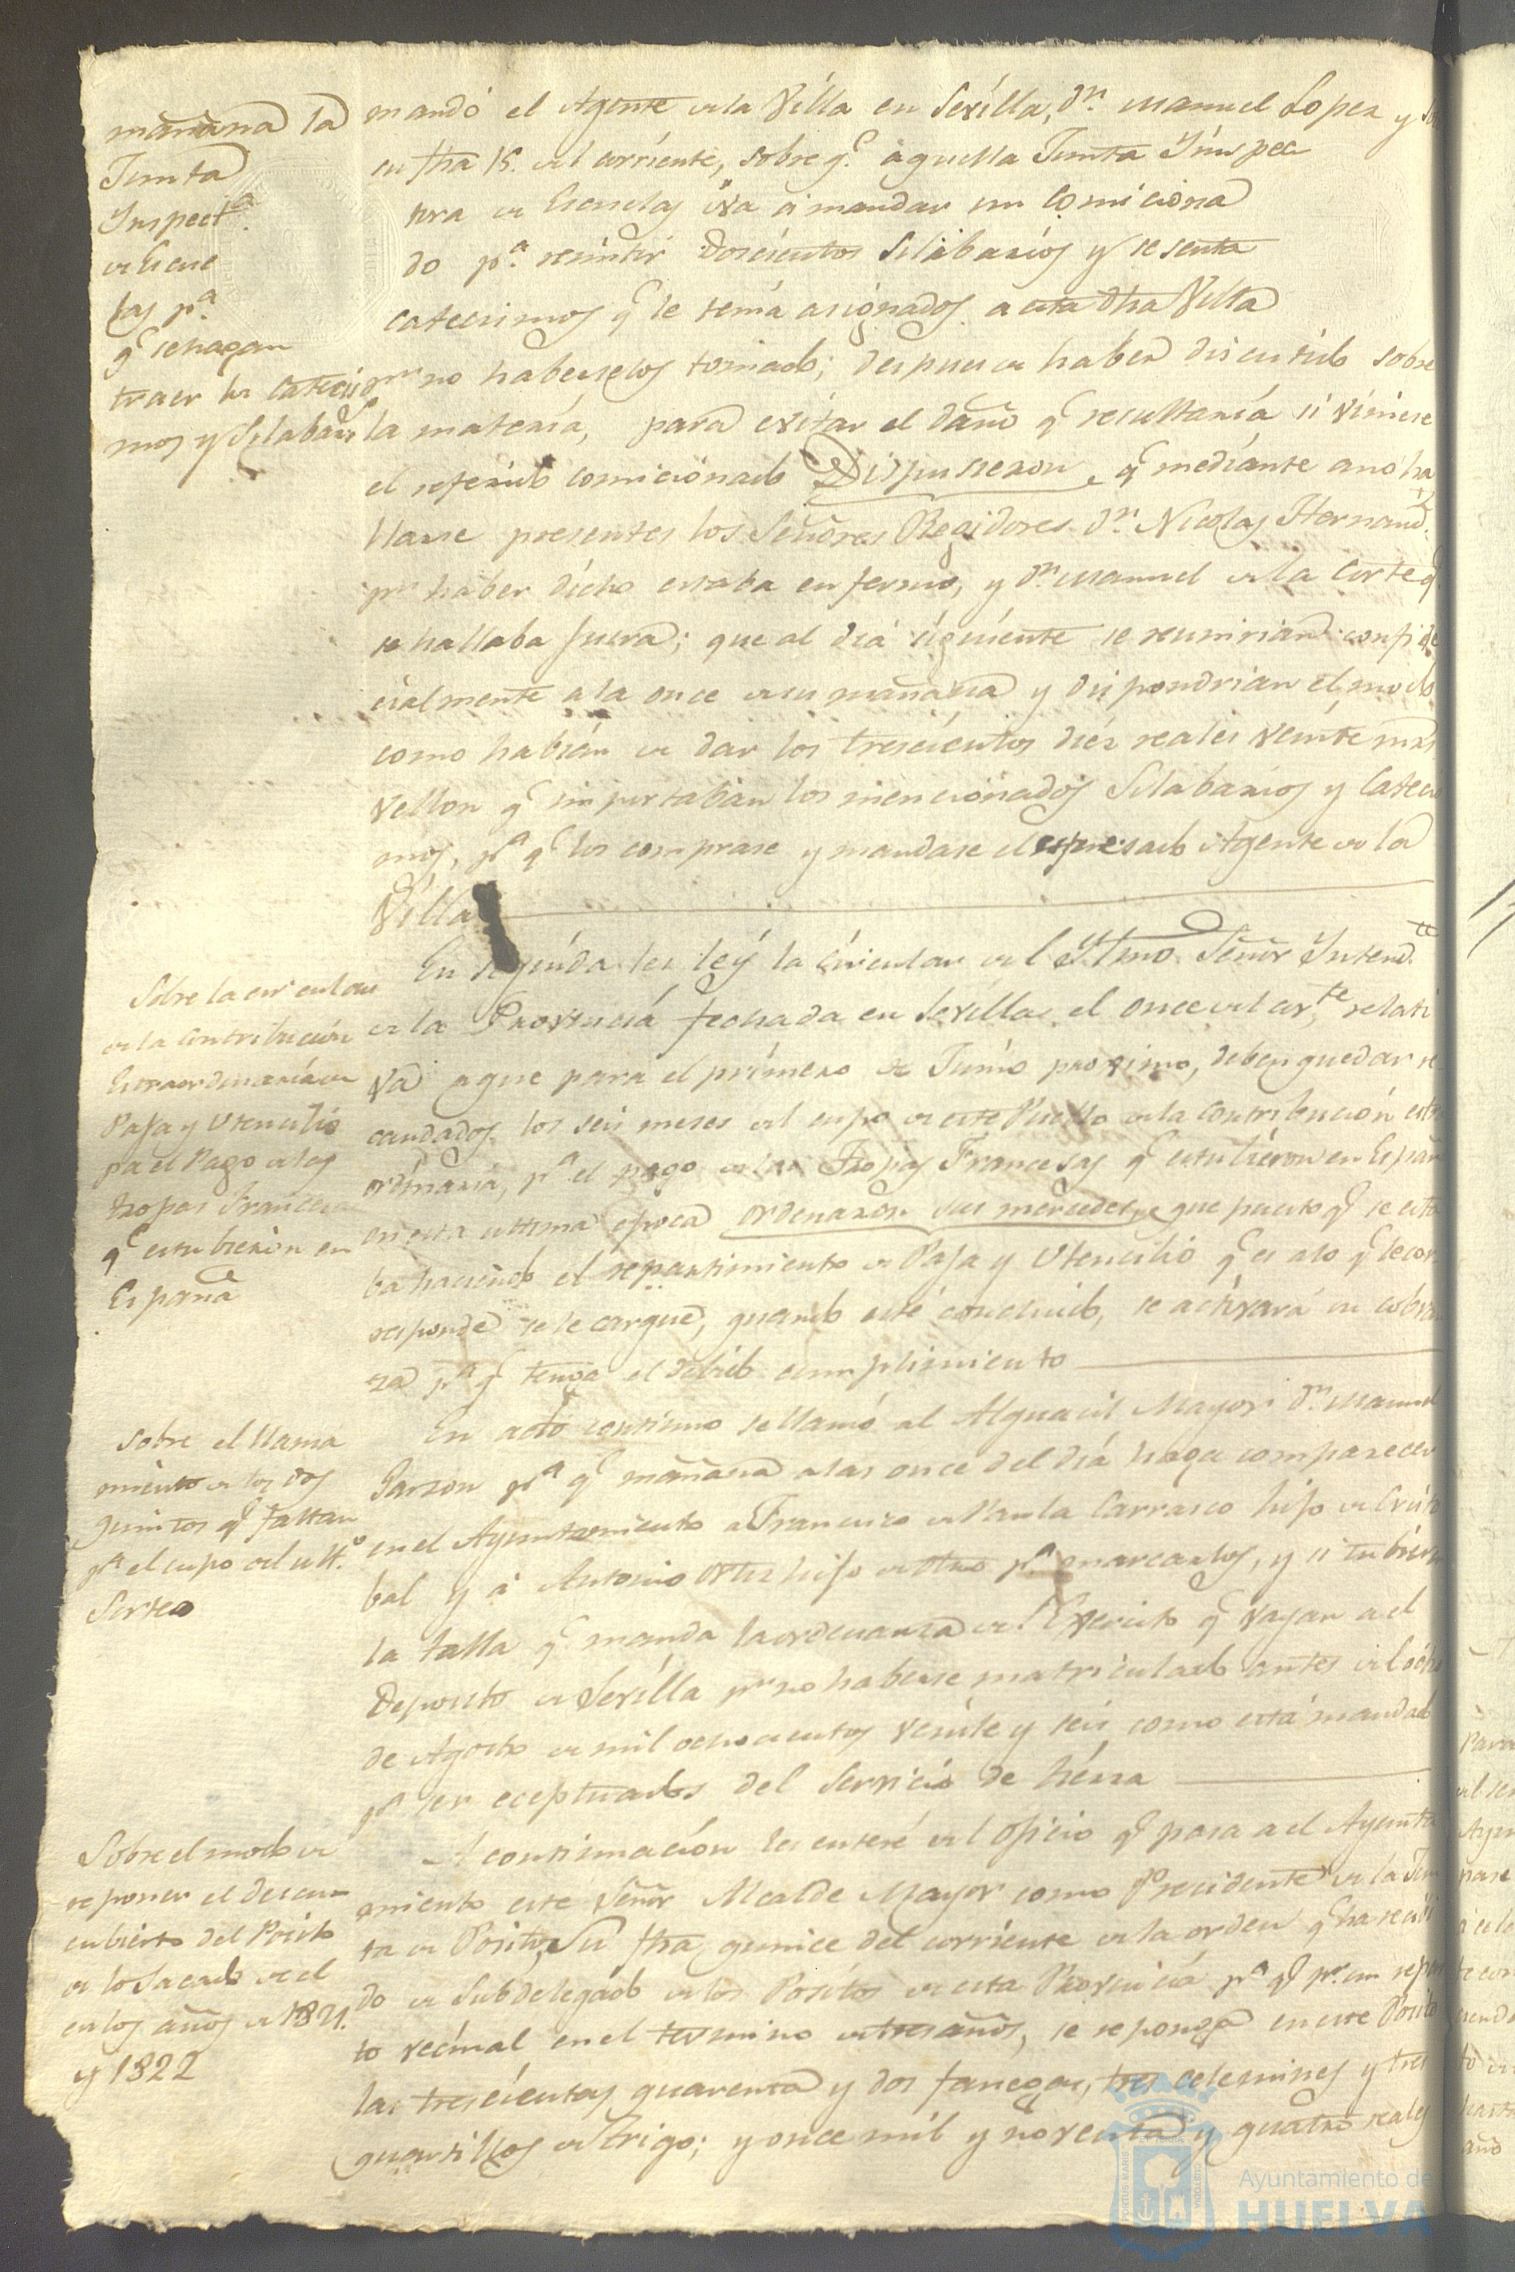 mañana la
Junta
Inspect.ª
de Escue
las p.ª
q.e se hagan
traer los Catecis
mos y Silabar.s
mandó el Agente de la Villa en Sevilla, D.n Manuel Lopez y
en fha 15. del corriente, sobre q.e aquella Junta Ynspec
tora de Escuelas iva a mandar un Comiciona
do p.ª remitir doscientos Silabarios y sesenta
catecismos q.e le tenia asignados a esta dha Villa
p.r no haberselos tomado; despues de haber discutido sobre
la materia, para evitar el daño q.e resultaria si viniese
el referido comicionado Dispusieron, q.e mediante a no ha
llarse presentes los Señores Regidores D.n Nicolas Hernand.
p.r haber dicho estaba enfermo, y D.n Manuel de la Corte q.e
se hallaba fuera; que al dia siguiente se reunirian confide
cialmente a la once de su mañana y dispondrian el modo
como habian de dar los trescientos diez reales veinte mrs
vellon q.e importaban los mencionados Silabarios y Catecis
mos, p.ª q.e los comprase y mandase el espresado Agente de la
Villa
Sobre la circular
de la Contribucion
Estraordinaria de
Paja y Utencilio
pa el Pago de las
tropas Francesas
q.e estubieron en
España
En seguida les leý la circular del Yltmo. Señor Yntend.te
de la Provincia fechada en Sevilla el once del cor.te relati
va a que para el primero de Junio proximo, deben quedar re
caudados los seis meses del cupo de este Pueblo de la contribucion estra
ordinaria, p.ª el pago de las Tropas Francesas q.e estubieron en España
en esta ultima epoca ordenaron sus mercedes, que puesto q.e se esta
ba haciendo el repartimiento de Paja y Utencilio q.e es a lo q.e le cor
responde se le cargue, quando esté concluido, se activará su cobran
za p.ª q.e tenga el debido cumplimiento
Sobre el llama
miento de los dos
quintos q.e faltan
p.ª el cupo del ult.º
Sorteo
En acto continuo se llamó al Alguacil Mayor D.n Manuel
Garzon p.ª q.e mañana a las once del dia haga comparecer
en el Ayuntamiento a Francisco de Paula Carrasco hijo de Cristo
bal y á Antonio Ortiz hijo de otro p.ª marcarlos, y si tubieren
la talla q.e manda la ordenanza del Exercito q.e vayan a el
Deposito de Sevilla p.r no haberse matriculado antes del ocho
de Agosto de mil ochocientos veinte y seis como está mandado
p.ª ser eceptuados del Servicio de tierra
Sobre el modo de
reponer el descu
cubierto del Posito
de lo Sacado de el
en los años de 1821.
y 1822
A continuacion les enteré del oficio q.e pasa a el Ayunta
miento este Señor Alcalde Mayor como Presidente de la Jun
ta de Posito, su fha quince del corriente de la orden q.e ha recivi
do de Subdelegado de los Positos de esta Provincia p.ª q.e p.r un repar
to vecinal en el termino de tres años, se reponga en este Posito
las trescientas quarenta y dos fanegas, tres celemines y tres
quartillos de trigo; y once mil y noventa y quatro reales
Ayuntamiento de
HUELVA